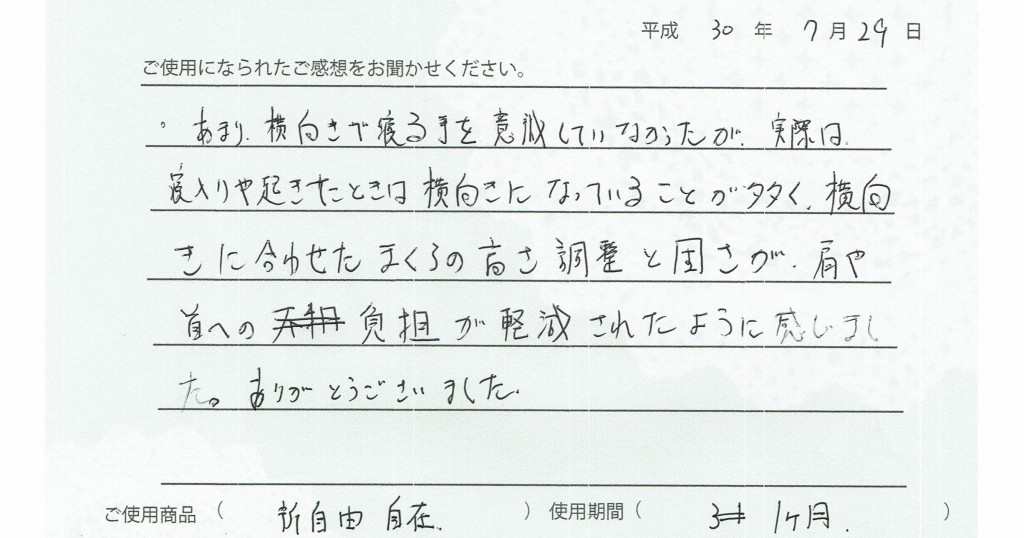 平成 30 年 7 月 29 日
ご使用になられたご感想をお聞かせください。
。あまり、横向きで寝る事を意識していなかったが、実際は、
寝入りや起きたときは横向きになっていることが多く、横向
きに合わせたまくらの高さ調整と固さが、肩や
首への 負担が軽減されたように感じまし
た。ありがとうございました。
ご使用商品（ 新自由自在. ） 使用期間（ 1ヶ月. ）